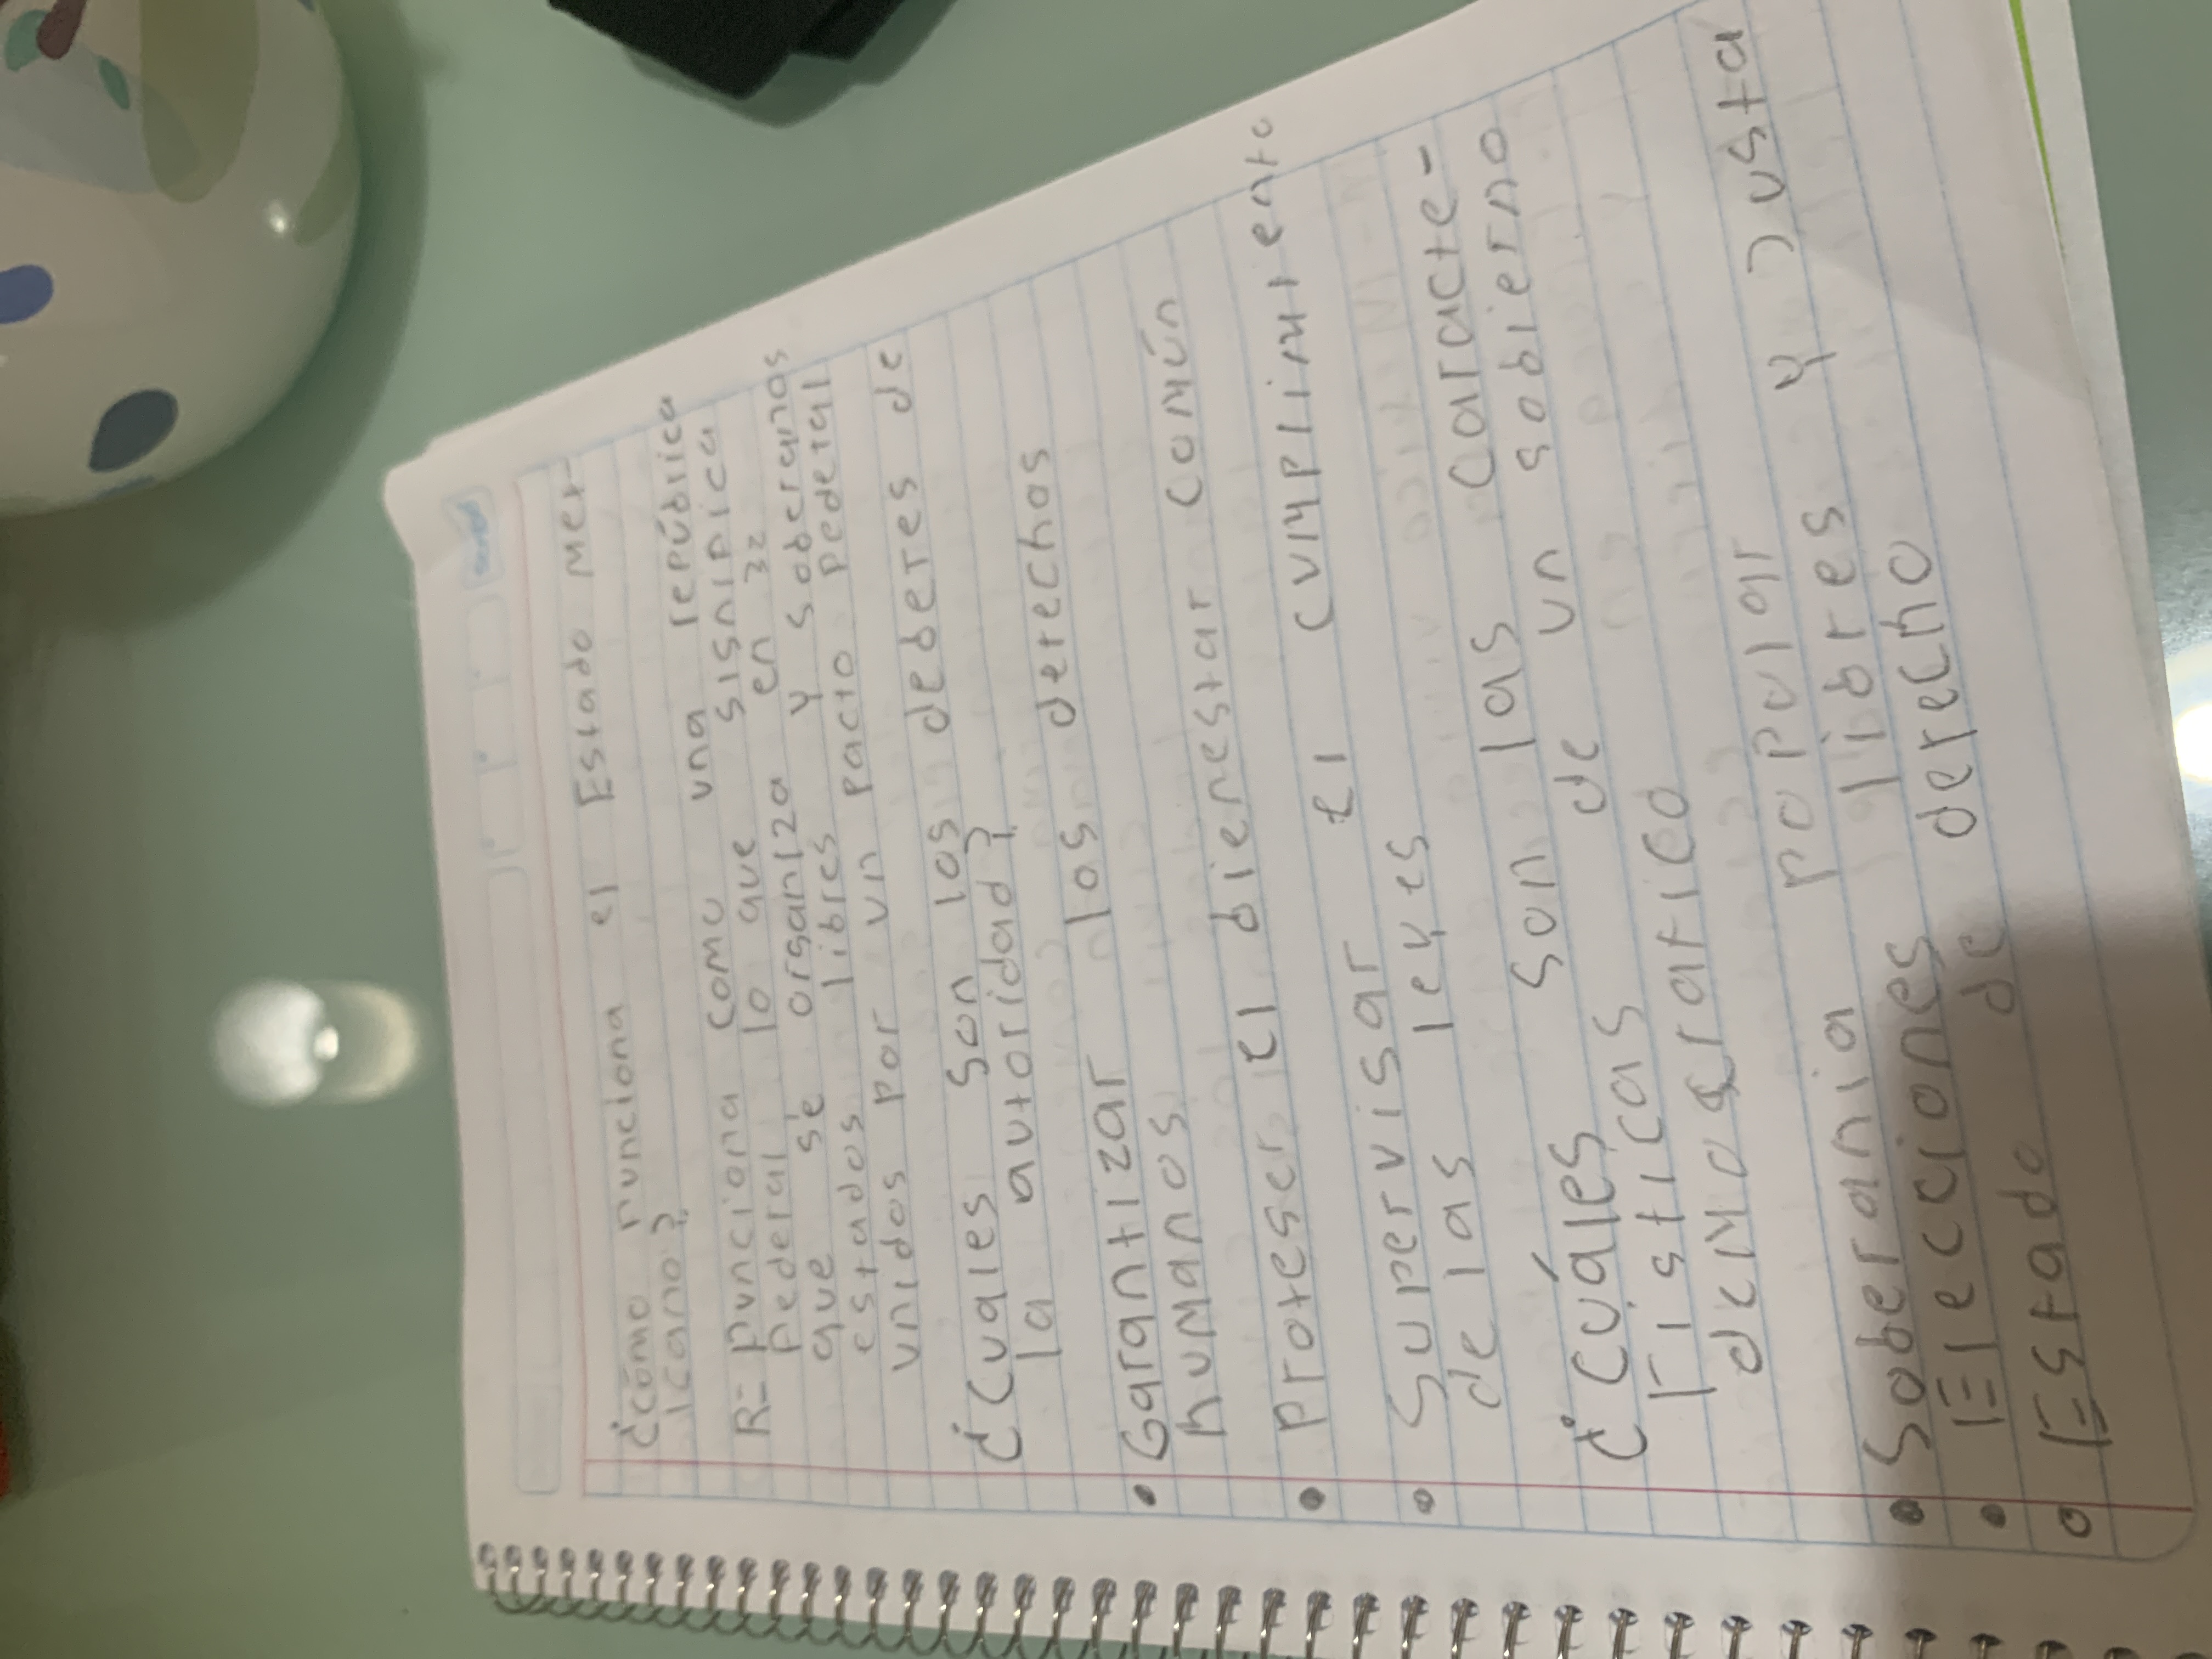 ¿cómo funciona el Estado mex-
icano?
R= funciona como una república
federal lo que significa
que se organiza en 32
estados libres y soberanos
unidos por un pacto federal
¿Cuales son los deberes de
la autoridad?
• Garantizar los derechos
humanos
• proteger el bienestar común
• Supervisar el cumplimiento
de las leyes
¿Cuáles son las caracte-
rísticas de un gobierno
democratico
• Soberania popular
• Elecciones libres y justa
• Estado de derecho